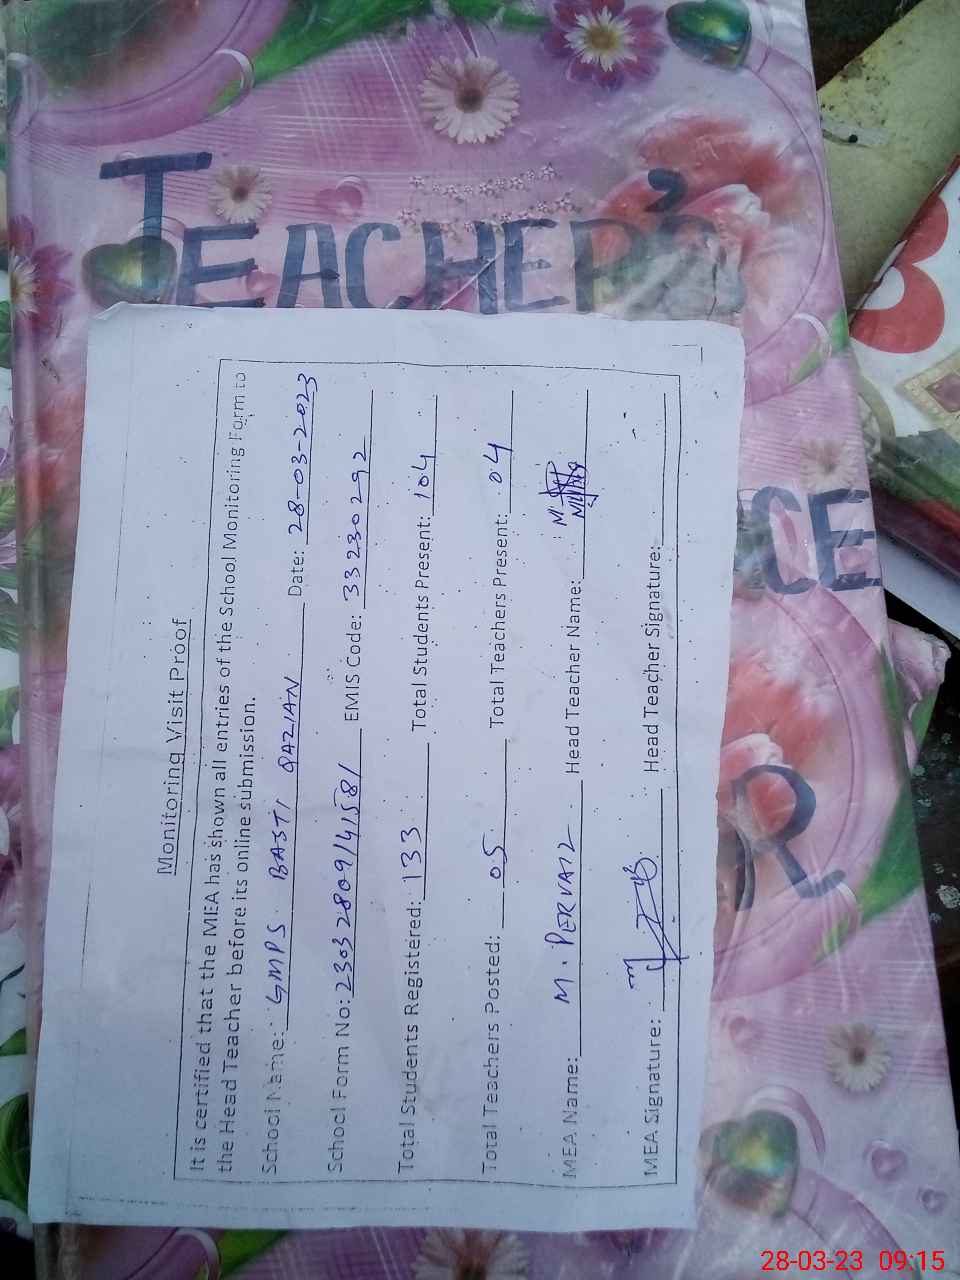 TEACHER'S
CE
R
Monitoring Visit Proof
It is certified that the MEA has shown all entries of the School Monitoring Form to
the Head Teacher before its online submission.
School Name: GMPS BASTI QAZIAN Date: 28-03-2023
School Form No: 23032809141581 EMIS Code: 33230292
Total Students Registered: 133 Total Students Present: 104
Total Teachers Posted: 05 Total Teachers Present: 04
MEA Name: M. PERVAIZ Head Teacher Name: M.
MEA Signature: Head Teacher Signature:
28-03-23 09:15